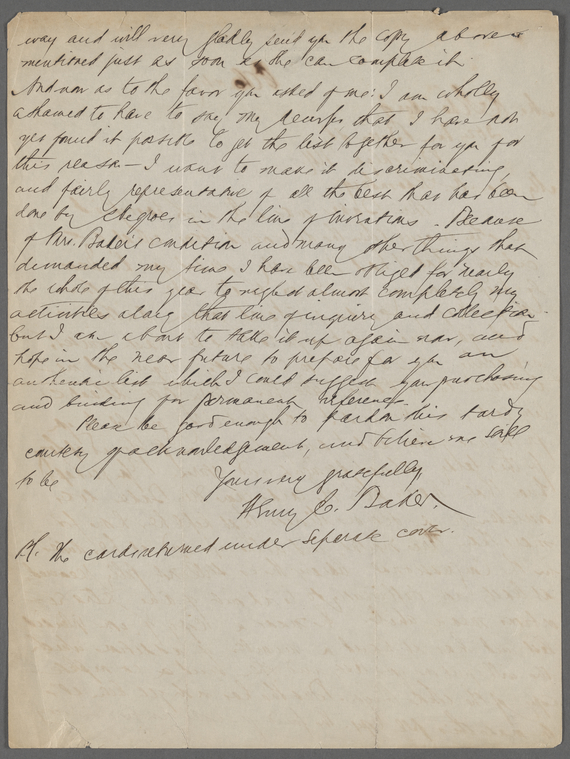 way and will very gladly send you the copy above
mentioned just as soon as she can complete it.
And now as to the favor you asked of me: I am wholly
ashamed to have to say my that I have not
yet found it possible to get the list together for you for
this reason— I want to make it discriminating,
and fairly representative of all the best that has been
done by Negroes in the line of inventions. Because
of Mrs. Baker's condition and many other things that
demanded my time I have been obliged for nearly
the whole of this year to neglect almost completely my
activities along that line of inquiry and collection.
but I am about to take it up again now, and
hope in the near future to prepare for you an
authentic list which I could suggest your purchasing
and binding for permanent reference.
Please be good enough to pardon this tardy
courtesy of acknowledgment, and believe me still
to be
Yours very gratefully,
Henry E. Baker.
The cards returned under separate cover.